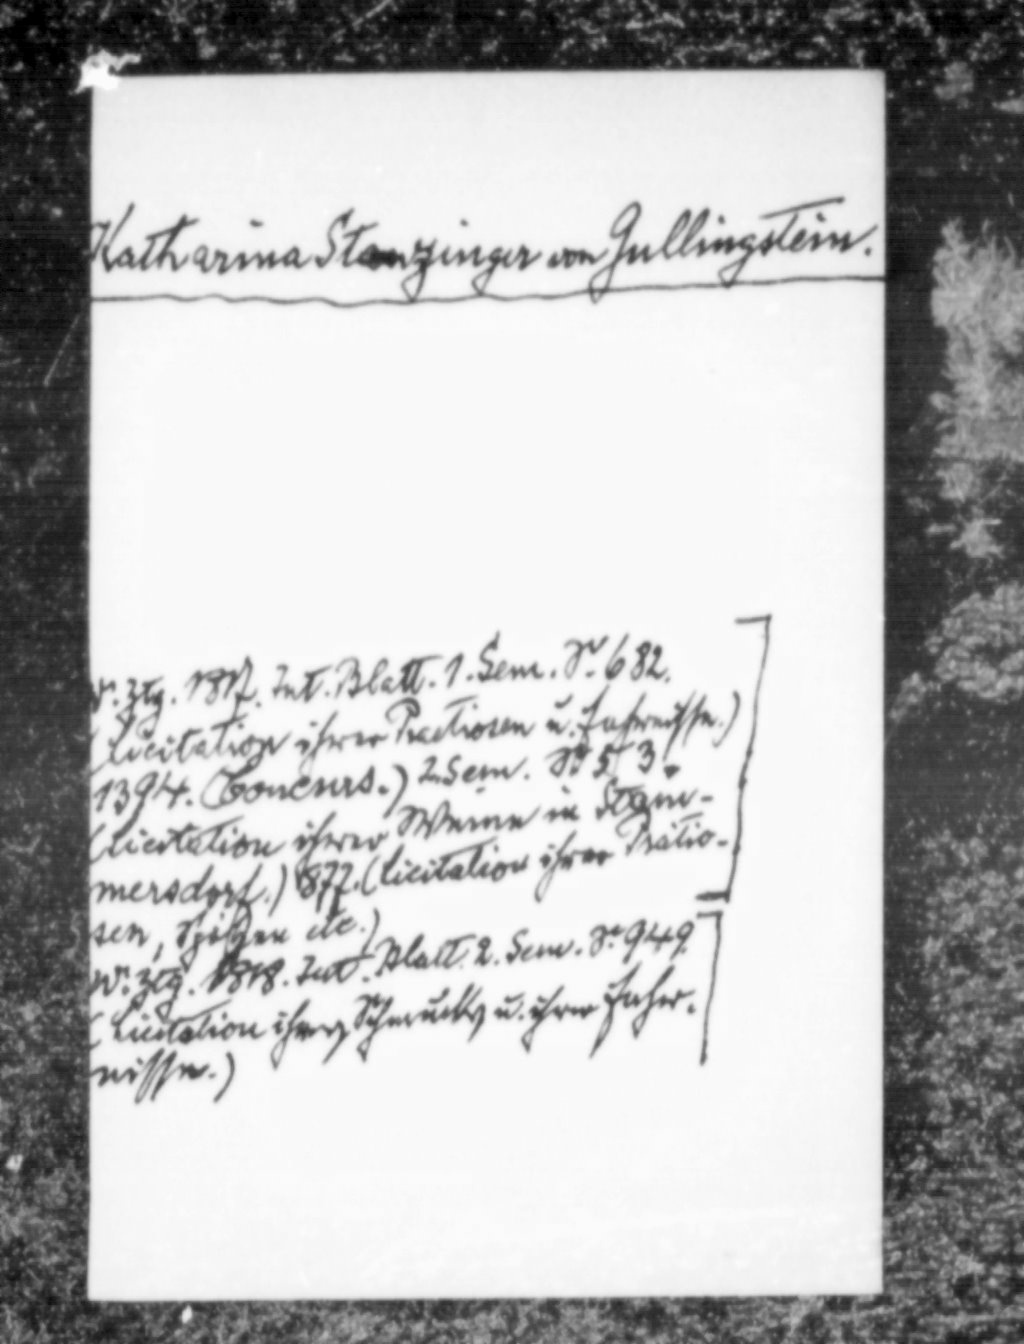 Katharina Stanzinger von Gullingstein.
W. Ztg. 1817. Int. Blatt. 1. Sem. S. 682.
(Licitation ihrer Pretiosen u. Fahrnisse.)
1394. (Concurs.) 2. Sem. S. 53.
(Licitation ihrer Weine in Stam-
mersdorf.) 877. (Licitation ihrer Pretio-
sen, Spitzen etc.)
W. Ztg. 1818. Int. Blatt. 2. Sem. S. 949.
(Licitation ihres Schmucks u. ihrer Fahr-
nisse.)